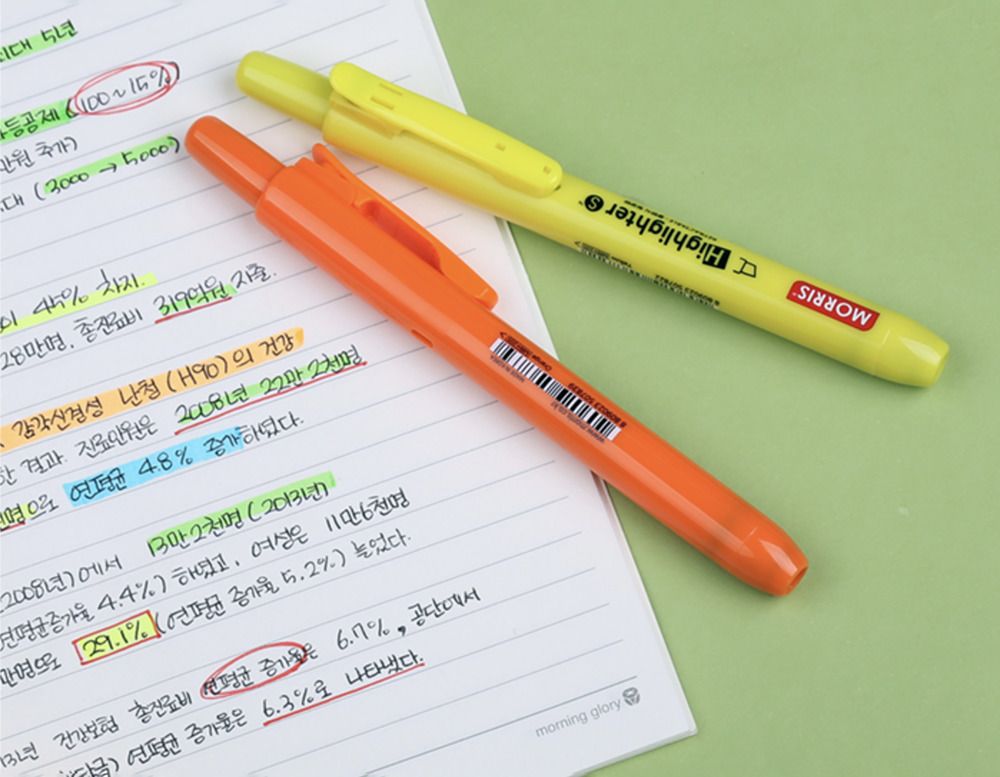 최대 5년
등공제 (100~15%
만원 추가)
대 (3000 → 5000)
이 45% 차지.
28만명. 총진료비 319억원 지출.
감각신경성 난청(H90)의 건강
한 결과. 진료인원은 2008년 22만 2천명
천명으로 연평균 4.8% 증가하였다.
13만 2천명(2013년)
2008년)에서
연평균증가율 4.4%) 하였고, 여성은 11만6천명
만명으로 29.1% (연평균 증가율 5.2%) 늘었다.
13년 건강보험 총진료비 연평균 증가율은 6.7%, 공단에서
연평균 증가율은 6.3%로 나타났다.
morning glory
Highlighter S
MORRIS
8 809023 507839